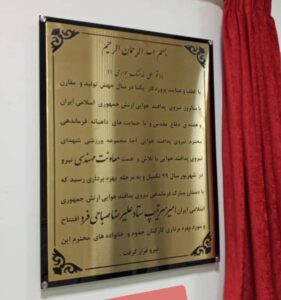 بسم الله الرحمان الرحیم
با لطف و عنایت پروردگار یکتا در سال جهش تولید و مقارن
با سالروز نیروی پدافند هوایی ارتش جمهوری اسلامی ایران
و هفته ی دفاع مقدس و با حمایت های داهیانه فرماندهی
محترم نیروی پدافند هوایی آجا مجموعه ورزشی شهدای
نیروی پدافند هوایی با تلاش و همت معاونت مهندسی نیرو
در شهریور سال ۹۹ تکمیل و به مرحله بهره برداری رسید که
با دستان مبارک فرماندهی نیروی پدافند هوایی ارتش جمهوری
اسلامی ایران امیر سرتیپ ستاد علیرضا صباحی فرد افتتاح
و مورد بهره برداری کارکنان خدوم و خانواده های محترم این
نیرو قرار گرفت.